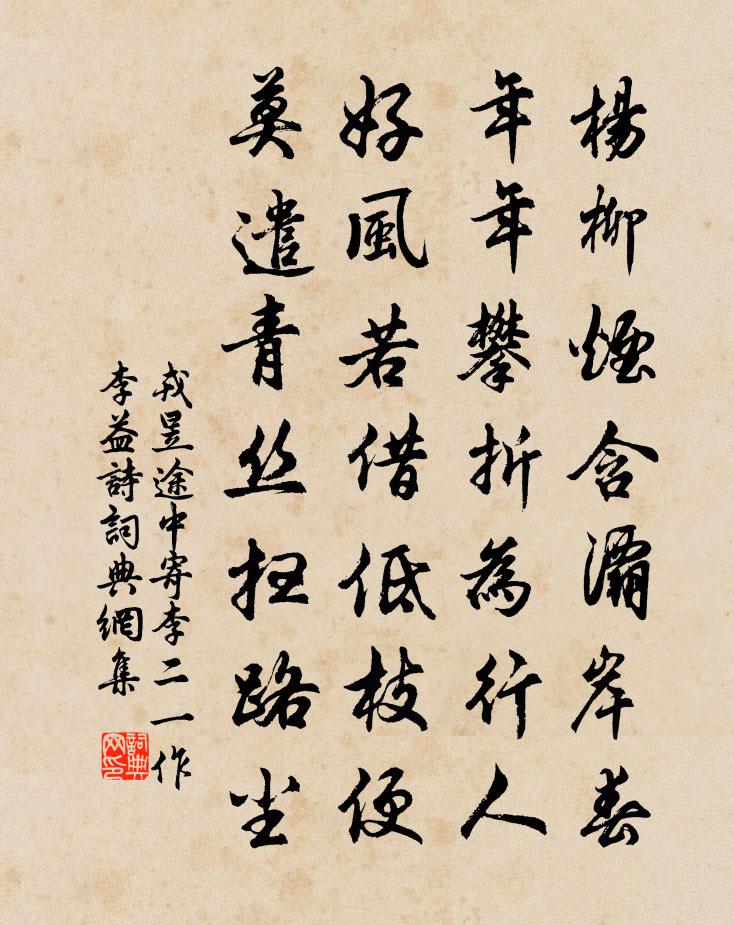 楊柳煙含灞岸春
年年攀折為行人
好風若借低枝便
莫遣青丝扫路尘
戎昱途中寄李二一作
李益詩詞典網集
詞典网印